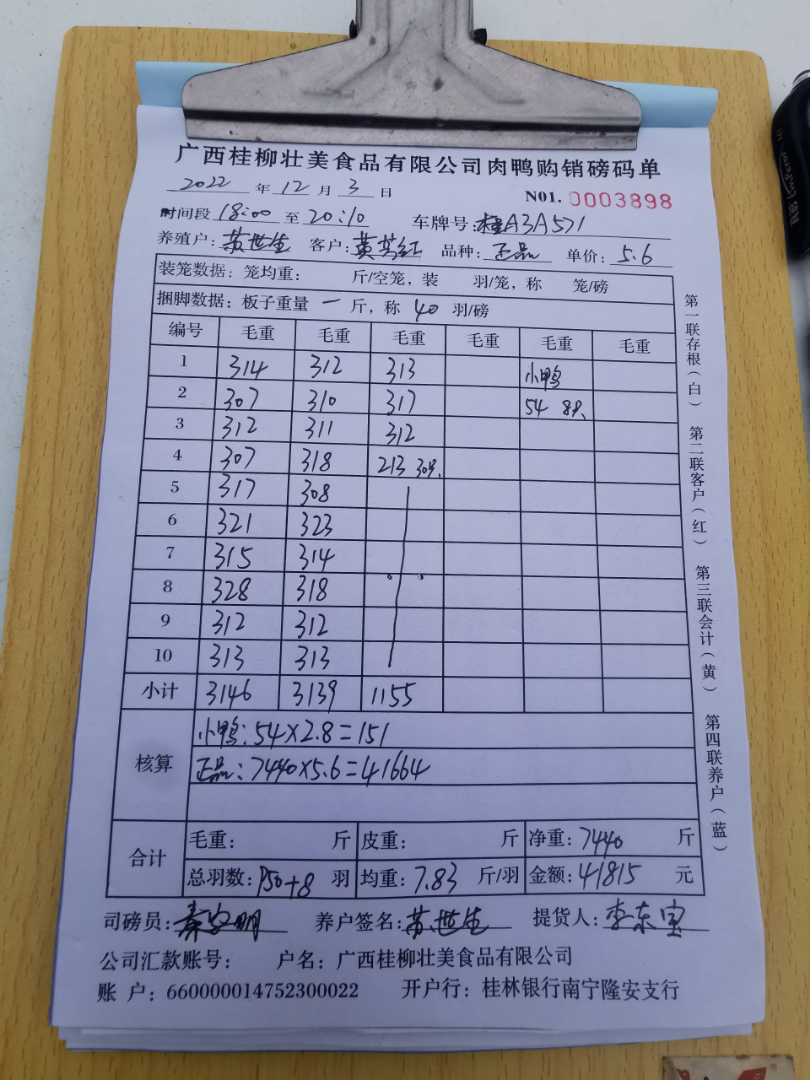 广西桂柳壮美食品有限公司肉鸭购销磅码单
2022 年 12 月 3 日 N01. 0003898
时间段 18:00 至 20:10 车牌号: 桂A3A571
养殖户: 苏世生 客户: 黄芳红 品种: 正品 单价: 5.6
装笼数据: 笼均重: 斤/空笼, 装 羽/笼, 称 笼/磅
捆脚数据: 板子重量 一 斤, 称 40 羽/磅
编号 毛重 毛重 毛重 毛重 毛重 毛重
1 314 312 313 小鸭
2 307 310 317 54 8只
3 312 311 312
4 307 318 213 30只
5 317 308
6 321 323
7 315 314
8 328 318
9 312 312
10 313 313
小计 3146 3139 1155
核算 小鸭: 54×2.8=151
正品: 7440×5.6=41664
合计 毛重: 斤 皮重: 斤 净重: 7440 斤
总羽数: 950+8 羽 均重: 7.83 斤/羽 金额: 41815 元
司磅员: 养户签名: 苏世生 提货人: 李东宝
公司汇款账号: 户名: 广西桂柳壮美食品有限公司
账 户: 660000014752300022 开户行: 桂林银行南宁隆安支行
第一联存根(白) 第二联客户(红) 第三联会计(黄) 第四联养户(蓝)